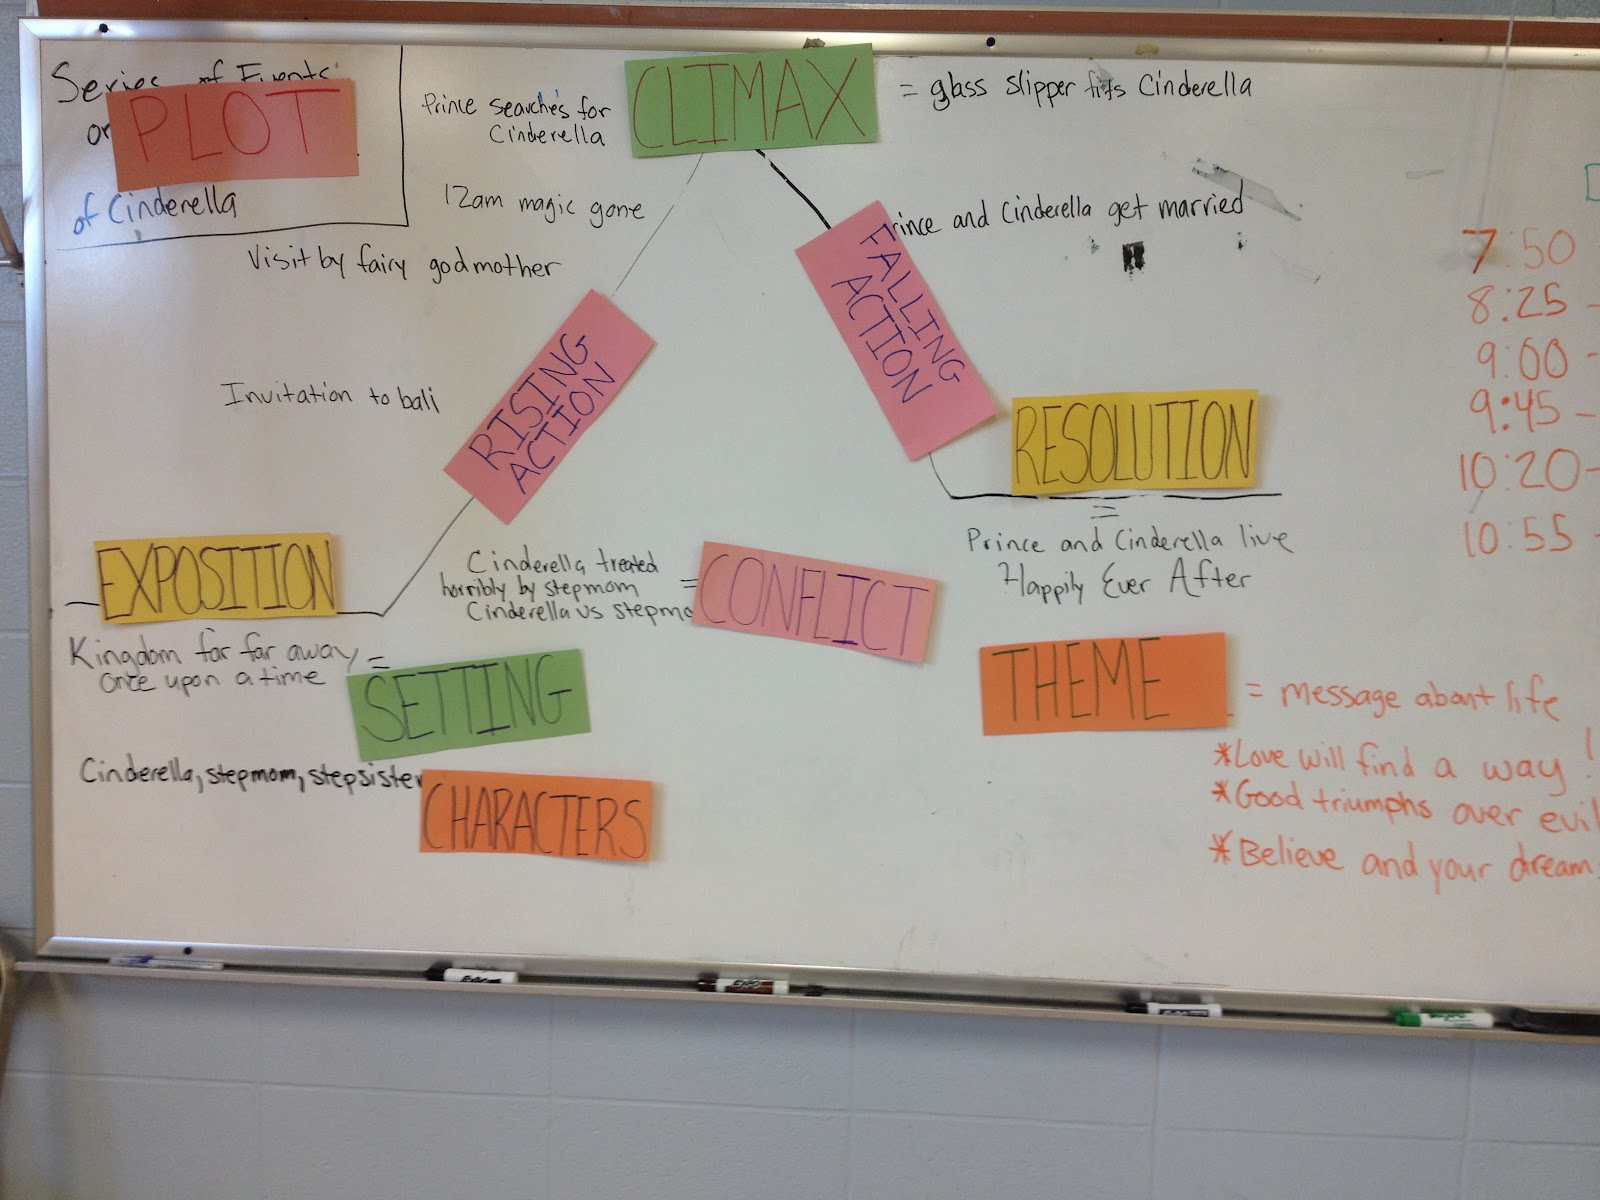 Series of Events
or
PLOT
of Cinderella
Prince searches for
Cinderella
CLIMAX
= glass slipper fits Cinderella
12am magic gone
Visit by fairy godmother
Invitation to ball
RISING
ACTION
FALLING
ACTION
rince and Cinderella get married
RESOLUTION
=
Prince and Cinderella live
Happily Ever After
EXPOSITION
Cinderella treated
horribly by stepmom
Cinderella vs stepmo
=
CONFLICT
Kingdom far far away =
Once upon a time
SETTING
Cinderella, stepmom, stepsister
CHARACTERS
THEME
= message about life
*Love will find a way!
*Good triumphs over evil
*Believe and your dream
7:50
8:25 -
9:00 -
9:45 -
10:20 -
10:55 -